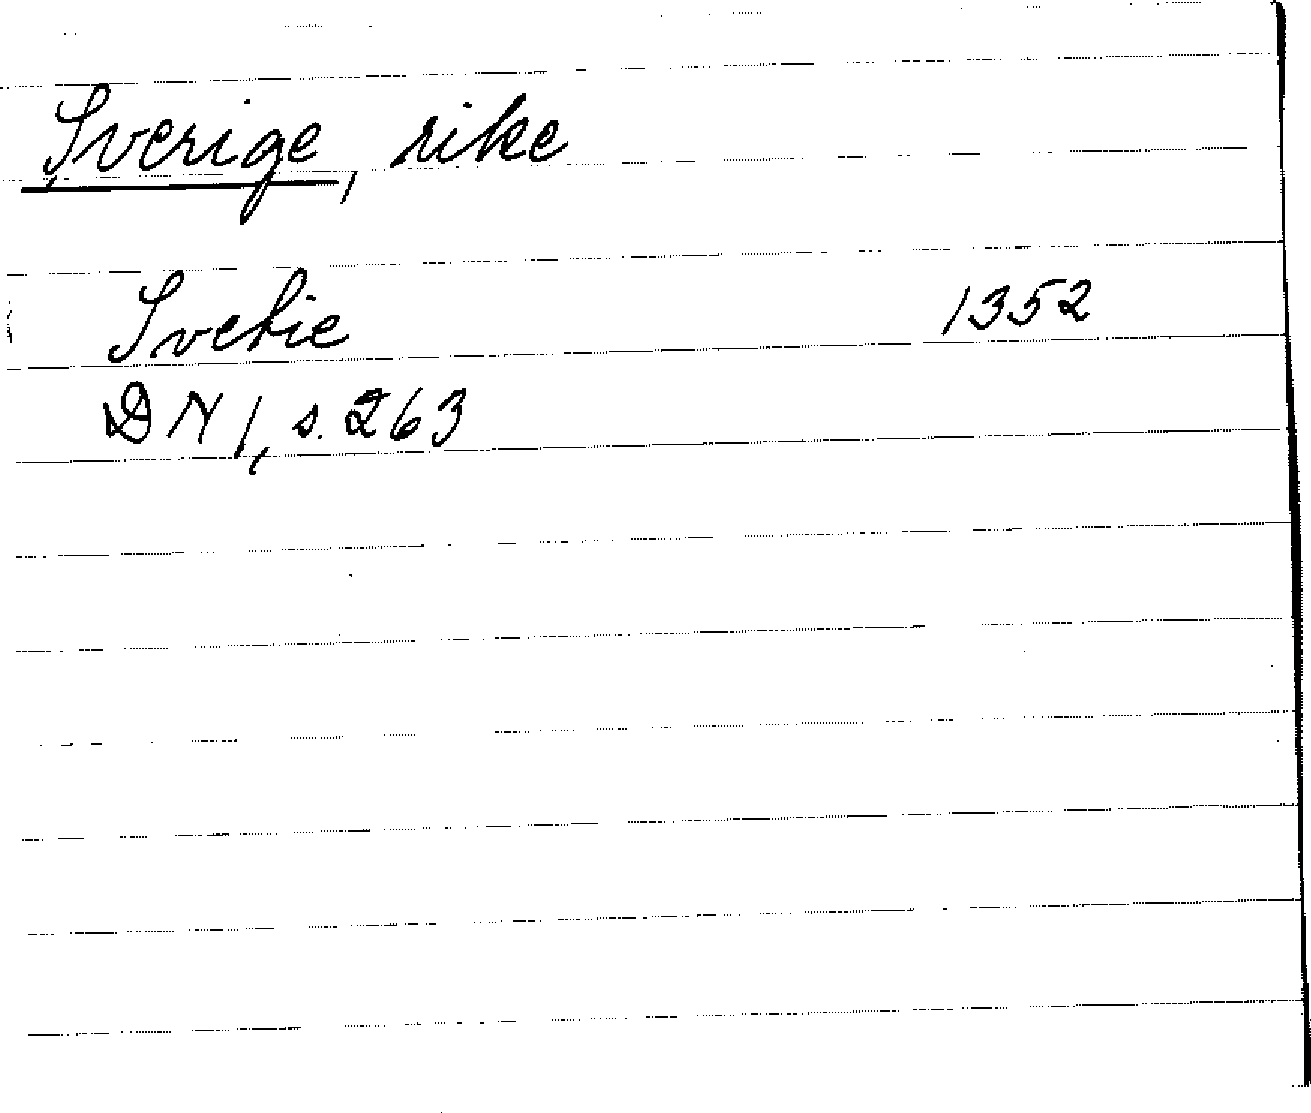 Sverige, rike
Svetie 1352
DN 1, s. 263